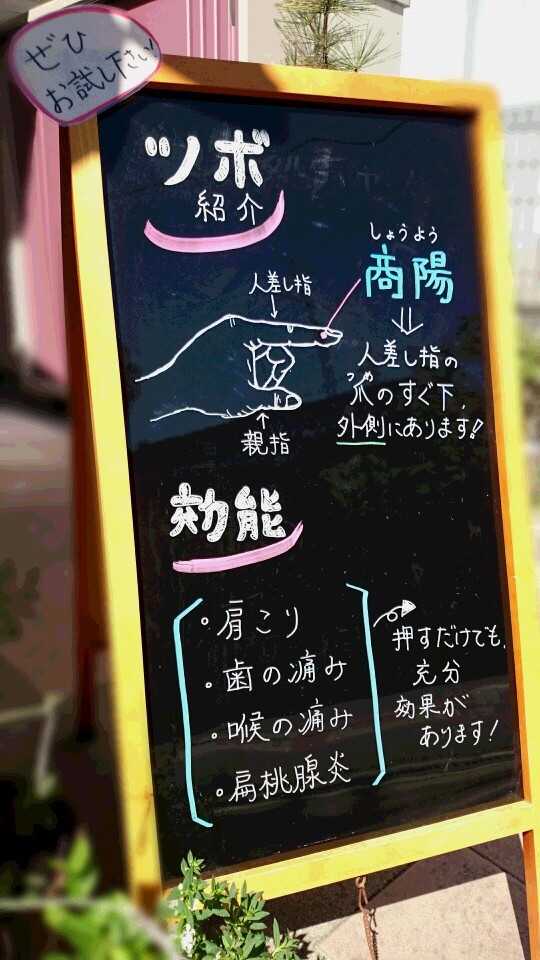 ぜひ
お試し下さい!
ツボ
紹介
しょうよう
商陽
人差し指
人差し指の
つめ
爪のすぐ下、
外側にあります!!
親指
効能
・肩こり
・歯の痛み
・喉の痛み
・扁桃腺炎
押すだけでも、
充分
効果が
あります!